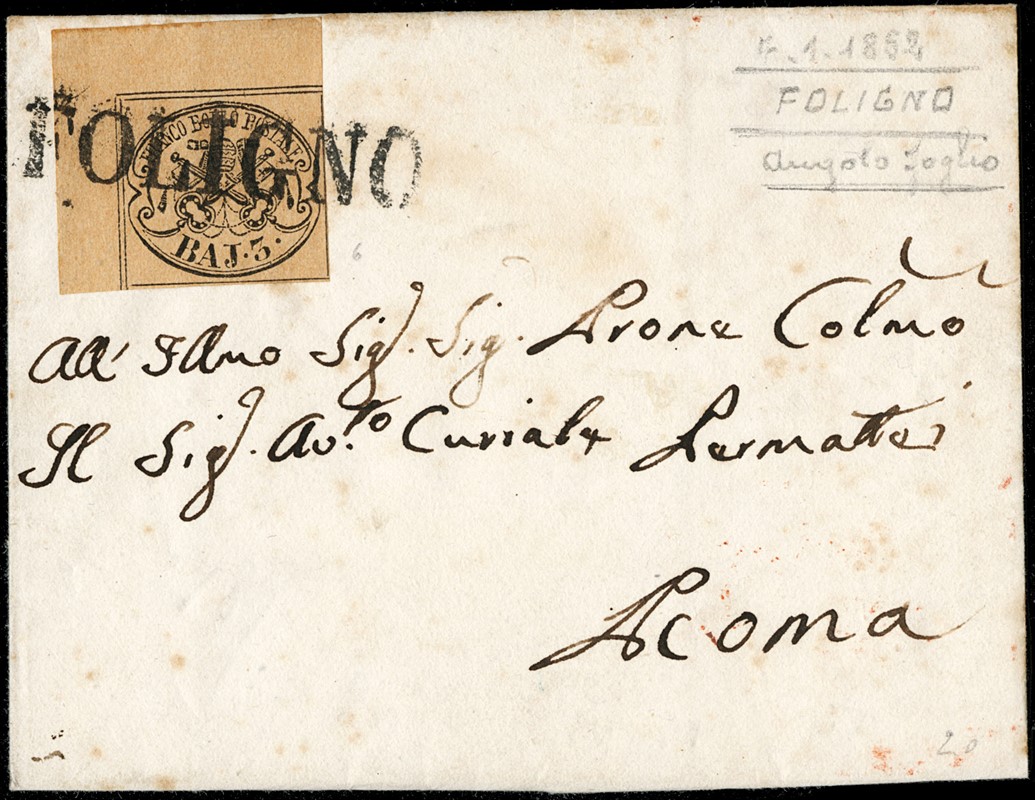 4.1.1852
FOLIGNO
angolo foglio
FOLIGNO
FRANCO BOLLO POSTALE
BAJ. 3.
6
All' Illmo Sig. Sig. Prone Colmo
Il Sig. Av.to Curiale Permattei
Roma
20